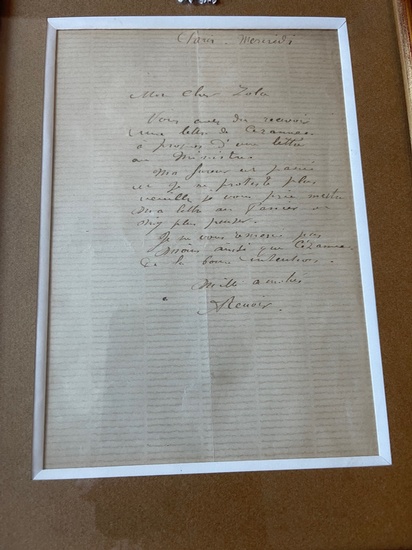 Mon Cher Zola
Vous avez du recevoir
une lettre de Cézanne
à propos d'une lettre
au Ministre.
Ma fureur est passée
et je ne proteste plus
veuillez je vous prie mettre
ma lettre au panier et
n'y plus penser.
Je ne vous remercie pas
moins ainsi que Cézanne
de la bonne intention.
Mille amitiés
Renoir.